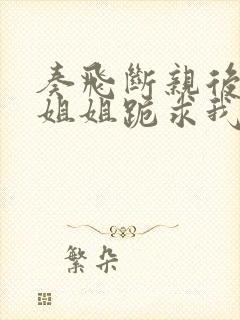 秦飛斷親後
姐姐跪求我
繁朵